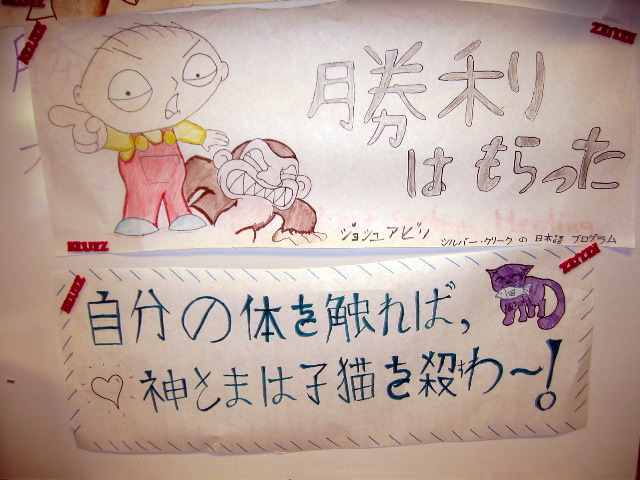 KLUTZ
KLUTZ
勝利
はもらった
シルバー・クリーク の 日本語 プログラム
KLUTZ
KLUTZ
KLUTZ
自分の体を触れば,
神とまは子猫を殺すわ〜!